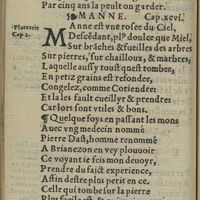 Par cinq ans la peult on garder.
MANNE. Cap.xvi.
Platearis
Cap.2.
MAnne est vne rosee du Ciel,
Descēdant, pl⁹ doulce que Miel,
Sur brāches & fueilles des arbres
Sur pierres, sur chailloux, & marbres,
Laquelle aussy toust quest tombee,
En petiz grains est refondee,
Congelez, comme Coriendre:
Et la les fault cueillyr & prendre:
Car lors sont vtiles & bons.
¶ Quelque foys en passant les mons
Auec vng medecin nommé
Pierre Dast, homme renommé
A Brianezon en vey plouuoir
Ce voyant ie feis mon deuoyr,
Prendre du faict experience,
Affin destre plus perit en ce.
Celle qui tombe sur la pierre